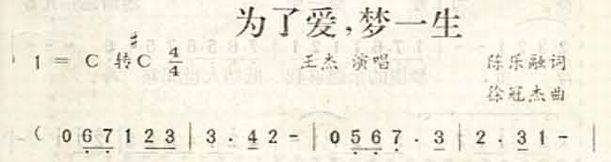 为了爱,梦一生
1 = C 转 ♯C 4/4 王杰 演唱 陈乐融词
徐冠杰曲
( 0 6̣ 7̣ 1 2 3 | 3 . 4 2 - | 0 5̣ 6̣ 7̣ . 3 | 2 . 3 1 - |